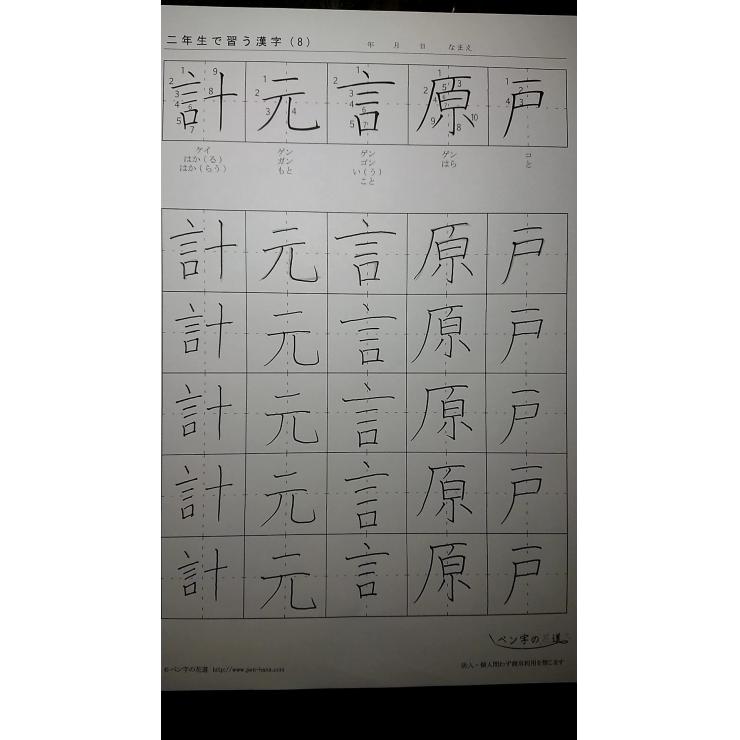 二年生で習う漢字(8)
年 月 日 なまえ
計 元 言 原 戸
ケイ
はか(る)
はか(らう)
ゲン
ガン
もと
ゲン
ゴン
い(う)
こと
ゲン
はら
コ
と
計 元 言 原 戸
計 元 言 原 戸
計 元 言 原 戸
計 元 言 原 戸
計 元 言 原 戸
ペン字の花道
©ペン字の花道 http://www.pen-hana.com
法人・個人問わず商用利用を禁じます